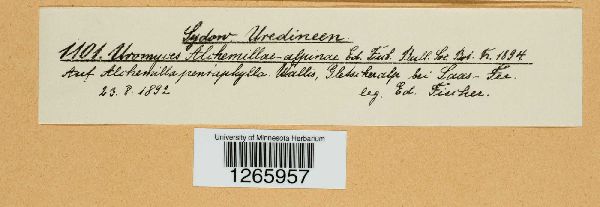 Sydow. Uredineen.
1101. Uromyces Alchemillae-alpinae Ed. Fisch. Bull. Soc. Bot. Fr. 1894
Auf Alchemilla pentaphylla. Wallis, Gletscheralp bei Saas-Fee.
23. 8. 1892 leg. Ed. Fischer.
University of Minnesota Herbarium
1265957